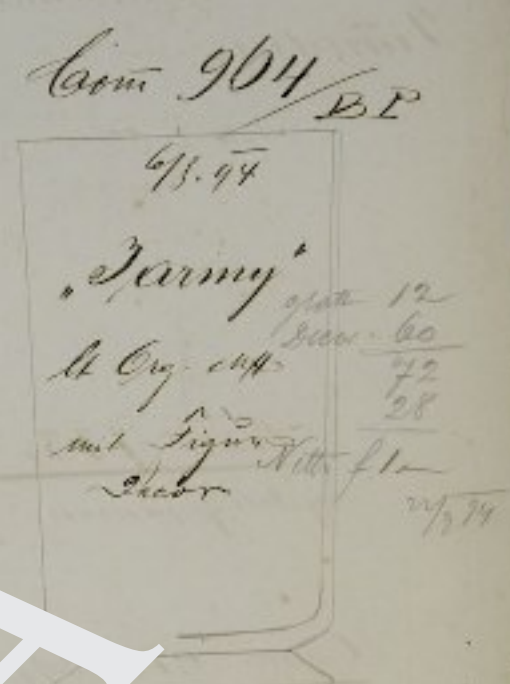 Com̄ 904/BP
6/3.94
„Jarmy“
lt Org.
mit Figur
Decor
glatt 12
Decor 60
72
28
Netto f 1
22/3 94